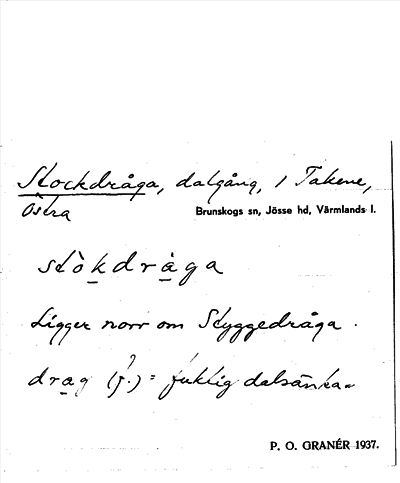 Stockdråga, dalgång, i Takene,
Östra Brunskogs sn, Jösse hd, Värmlands l.
stòkdràga
Ligger norr om Styggedråga.
drag (f.) = fuktig dalsänka.
P. O. GRANÉR 1937.